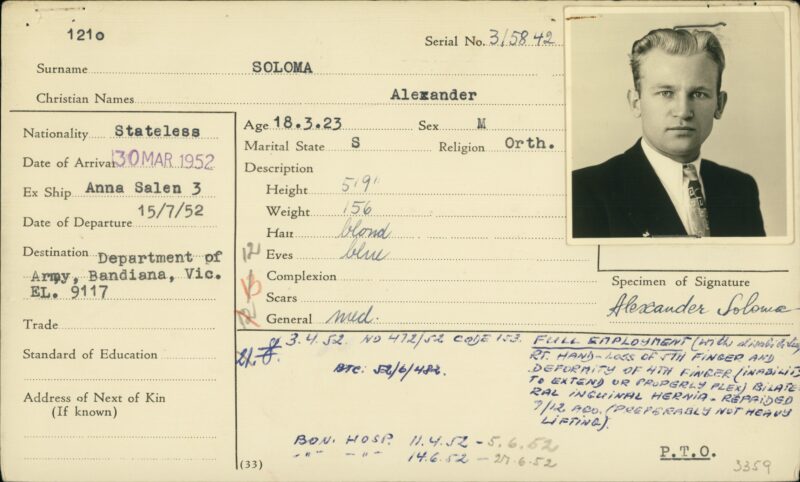 1210
Serial No. 315842
Surname SOLOMA
Christian Names Alexander
Nationality Stateless
Date of Arrival 30 MAR 1952
Ex Ship Anna Salen 3
Date of Departure 15/7/52
Destination Department of
Army, Bandiana, Vic.
EL. 9117
Trade
Standard of Education
Address of Next of Kin
(If known)
Age 18.3.23 Sex M
Marital State S Religion Orth.
Description
Height 5'9"
Weight 156
Hair blond
Eyes blue
Complexion
Scars
General med.
Specimen of Signature
Alexander Soloma
3.4.52. NO 472/52 CODE 153. FULL EMPLOYMENT (with disability
RT. HAND - LOSS OF 5TH FINGER AND
DEFORMITY OF 4TH FINGER (INABILITY
TO EXTEND OR PROPERLY FLEX) BILATE-
RAL INGUINAL HERNIA - REPAIRED
7/12 AGO. (PREFERABLY NOT HEAVY
LIFTING).
BTC. 52/6/482.
BON. HOSP. 11.4.52 - 5.6.52
-"- -"- 14.6.52 - 27.6.52
P.T.O.
(33)
3359